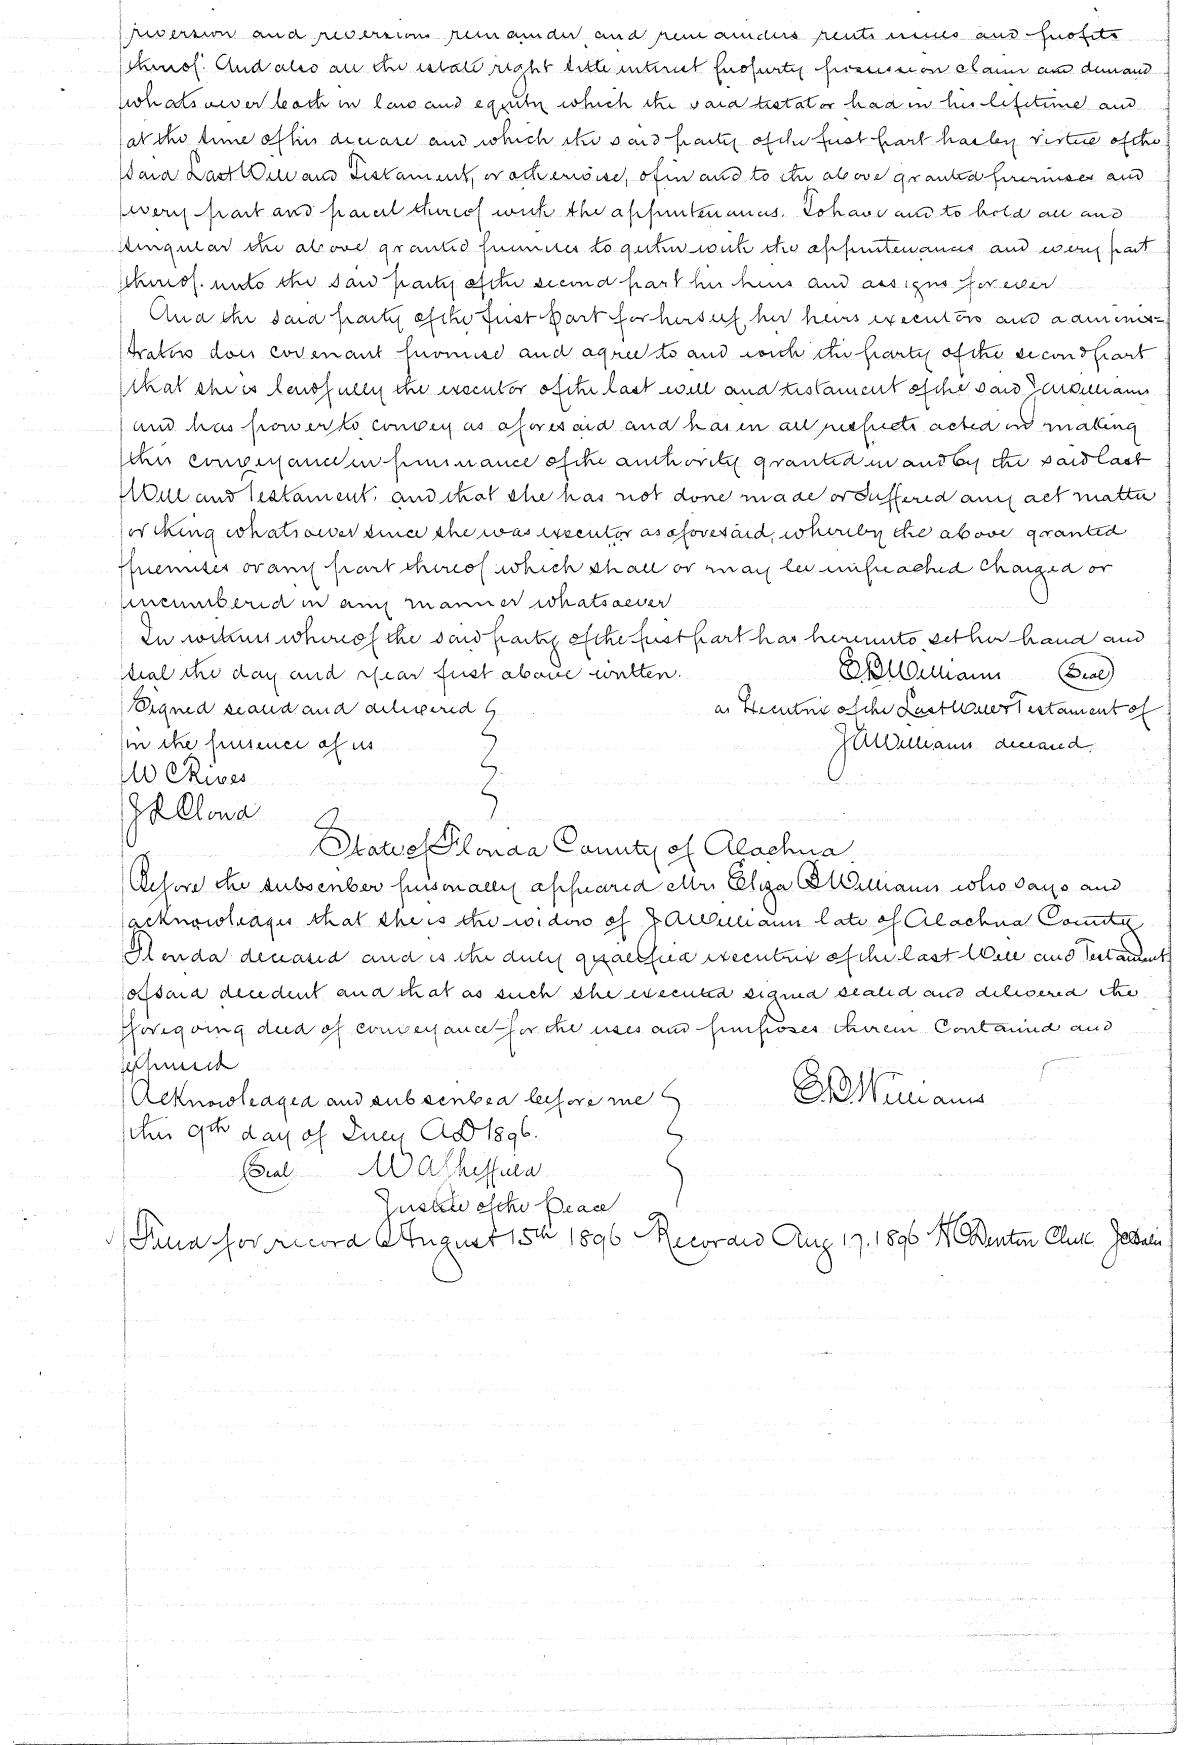 reversion and reversions remainder and remainders rents issues and profits
thereof. And also all the estate right title interest property possession claim and demand
whatsoever both in law and equity which the said testator had in his lifetime and
at the time of his decease and which the said party of the first part has by virtue of the
said Last Will and Testament, or otherwise, of in and to the above granted premises and
every part and parcel thereof with the appurtenances. To have and to hold all and
singular the above granted premises together with the appurtenances and every part
thereof. unto the said party of the second part his heirs and assigns forever
And the said party of the first part for herself, her heirs executors and adminis=
trators does covenant promise and agree to and with the party of the second part
that she is lawfully the executor of the last will and testament of the said JAWilliams
and has power to convey as aforesaid and has in all respects acted in making
this conveyance in pursuance of the authority granted in and by the said last
Will and Testament, and that she has not done made or suffered any act matter
or thing whatsoever since she was executor as aforesaid, whereby the above granted
premises or any part thereof which shall or may be impeached charged or
incumbered in any manner whatsoever
In witness whereof the said party of the first part has hereunto set her hand and
seal the day and year first above written. E B Williams (Seal)
Signed sealed and delivered as Executrix of the Last Will & Testament of
in the presence of us JAWilliams deceased.
W C Rives
J R Cloud
State of Florida County of Alachua
Before the subscriber personally appeared Mrs Eliza B Williams who says and
acknowledges that she is the widow of JAWilliams late of Alachua County
Florida deceased and is the duly qualified executrix of the last Will and Testament
of said decedent and that as such she executed signed sealed and delivered the
foregoing deed of conveyance for the uses and purposes therein Contained and
expressed
Acknowledged and subscribed before me E.B. Williams
this 9th day of July AD 1896.
(Seal W A Sheffield
Justice of the Peace
Filed for record August 15th 1896 Recorded Aug 17. 1896 H C Denton Clerk